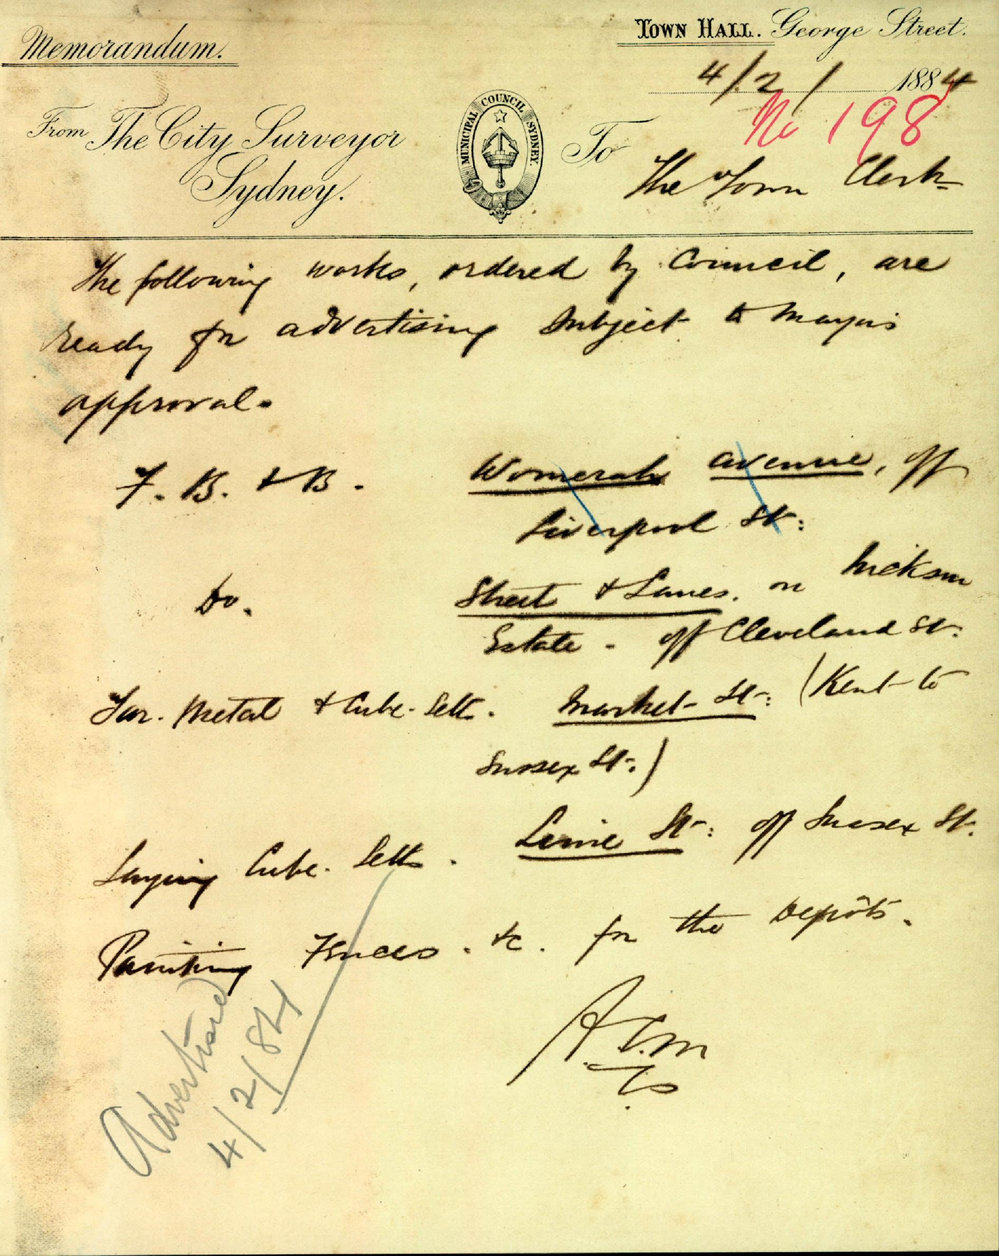 Memorandum.
TOWN HALL. George Street.
4/2/ 1884
No 198
From The City Surveyor
Sydney.
MUNICIPAL COUNCIL SYDNEY.
To
The Town Clerk
The following works, ordered by Council, are
ready for advertising subject to Mayor's
approval.
F. B. & B. Womerah Avenue, off
Liverpool St:
Do. Street & Lanes. on Hickson
Estate. off Cleveland St.
Tar. Metal & Cube. Setts. Market St: (Kent to
Sussex St.)
Laying Cube. Setts. Lime St: off Sussex St.
Painting Fences. &c. for the Depôts.
Advertised
4/2/84